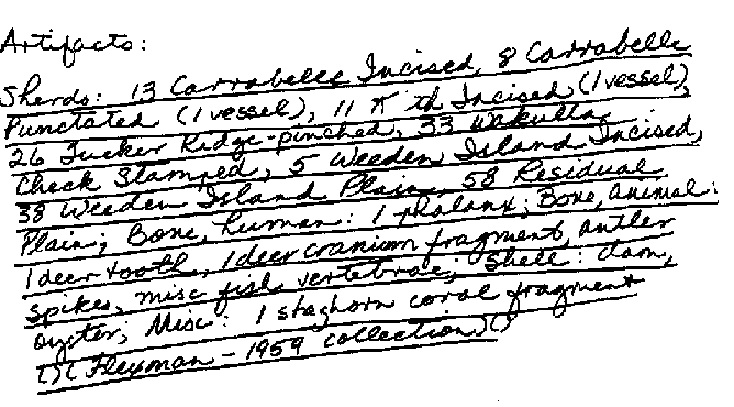 Artifacts:
Sherds: 13 Carrabelle Incised, 8 Carrabelle
Punctated (1 vessel), 11 Keith Incised (1 vessel),
26 Tucker Ridge-pinched, 33 Wakulla
Check Stamped, 5 Weeden Island Incised,
38 Weeden Island Plain, 58 Residual
Plain; Bone, human: 1 phalanx; Bone, animal:
1 deer tooth, 1 deer cranium fragment, antler
spikes, misc fish vertebrae; Shell: clam,
oyster; Misc: 1 staghorn coral fragment
(Flexman - 1959 collection)